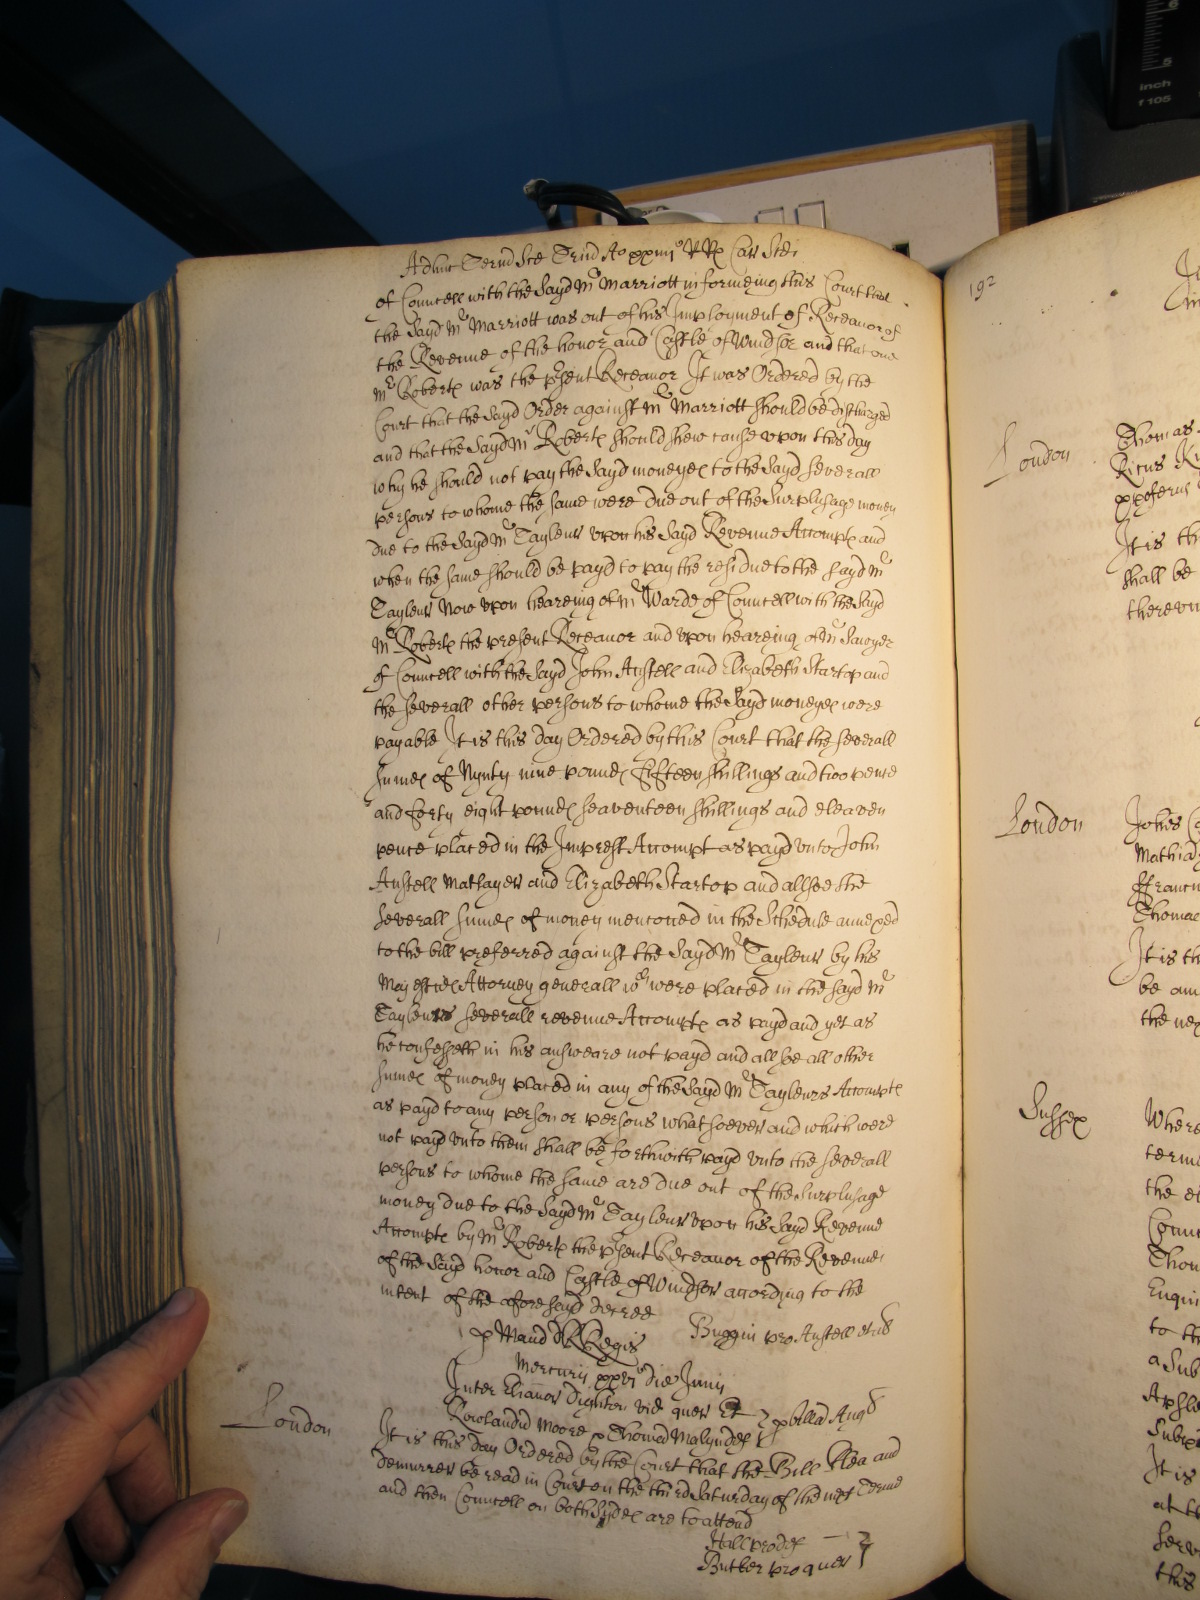 Adhuc Termino Sce Trin Ao xxiiijo R Rx Car Scdi
of Councell with the Sayd Mr Marriott informeing this Court that
the Sayd Mr Marriott was out of his Imployment of Receavor of
the Revenue of the honor and Castle of Windsor and that one
Mr Robertes was the psent Receavor It was Ordered by the
Court that the Sayd Order against Mr Marriott should be discharged
and that the Sayd Mr Robertes should shew cause upon this day
why he should not pay the Sayd moneyes to the Sayd severall
persons to whome the same were due out of the Surplusage money
due to the Sayd Mr Tayleur upon his Sayd Revenue Accompts and
when the same should be payd to pay the residue to the Sayd Mr
Tayleur Now upon heareing of Mr Warde of Councell with the Sayd
Mr Robertes the present Receavor and upon heareing of Mr Sawyer
of Councell with the Sayd John Anstell and Elizabeth Startop and
the severall other persons to whome the Sayd moneyes were
payable It is this day Ordered by this Court that the severall
sumes of Nynty nine poundes fifteen shillings and twoo pence
and forty eight poundes seaventeen shillings and eleaven
pence placed in the Imprest Accompt as payd unto John
Anstell Mathayer and Elizabeth Startop and allsoe the
severall sumes of money mencoed in the Schedule annexed
to the bill preferred against the Sayd Mr Tayleur by his
Majesties Attorney generall wch were placed in the Sayd Mr
Tayleurs severall revenue Accompts as payd and yet as
he confesseth in his answeare not payd and all be all other
sumes of money placed in any of the Sayd Mr Tayleurs Accompts
as payd to any person or persons whatsoever and which were
not payd unto them shall be forthwith payd unto the severall
persons to whome the same are due out of the Surplusage
money due to the Sayd Mr Tayleur upon his Sayd Revenue
Accompts by Mr Robertes the psent Receavor of the Revenue
of the Sayd honor and Castle of Windsor according to the
intent of the aforesayd decree
Buggin pro Anstell et al
p Mand DR Regis
Mercurij xxvjo die Junij
Inter Elianor Dighton vid quer Et
Rowlandu Moore &
 p billa Angl
London
It is this day Ordered by the Court that the Bill Plea and
demurrer be read in Court on the third Saturday of the next Terme
and then Councell on both sydes are to attend
Hall pro def
Butler pro quer
192
London
Thomas
Ricus
It is th
shall be
thereu
London
Johes
Mathia
ffranc
Thomas
It is th
be am
the nex
Sussex
Where
terme
the
Coun
Thom
Enqui
to th
a Sub
Subp
It is
at th
serv
this